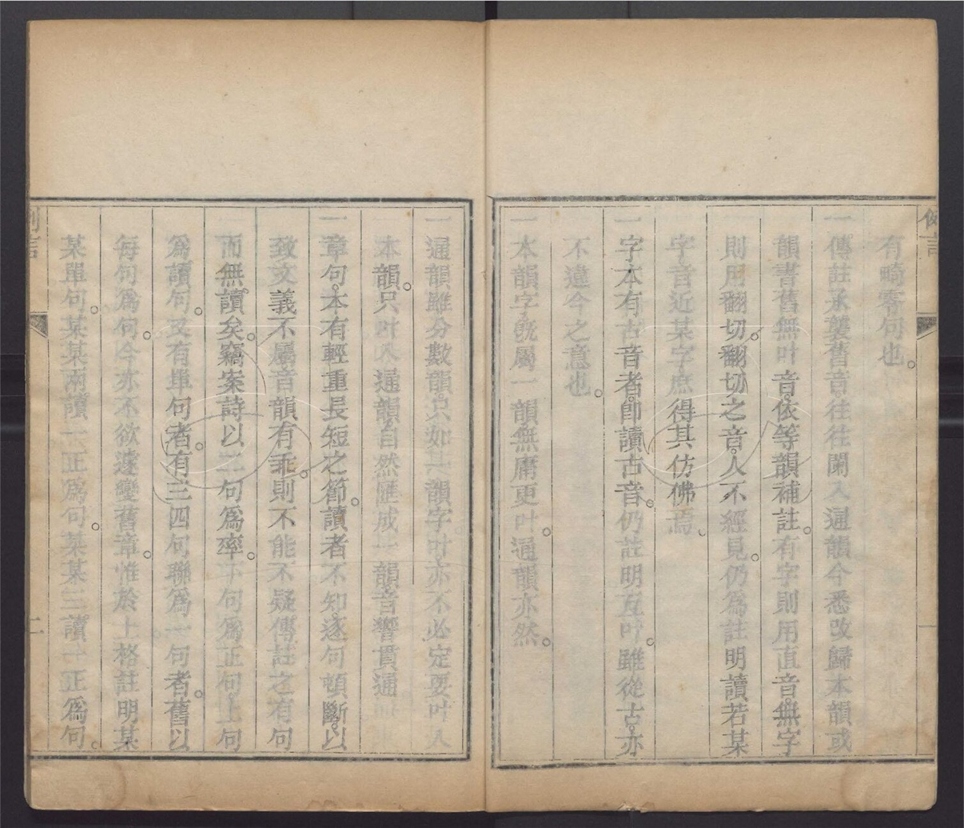 有畸零句也。
一傳註承襲舊音往往闌入通韻今悉改歸本韻或
韻書舊無叶音依等韻補註。有字則用直音無字
則用翻切。翻切之音人不經見。仍為註明讀若某
字音近某字庶得其仿佛焉。
一字本有古音者卽讀古音。仍註明互叶。雖從古亦
不違今之意也。
一本韻字旣屬一韻無庸更叶。通韻亦然。
例言
一
一通韻雖分數韻只如一韻字叶亦不必定要叶入
本韻。只叶入通韻自然匯成一韻音響貫通
一章句本有輕重長短之節。讀者不知逐句頓斷以
致文義不屬音韻有乖。則不能不疑傳註之有句
而無讀矣。竊案詩以二句為率。下句為正句上句
爲讀句。又有單句者。有三四句聯爲一句者。舊以
每句爲句。今亦不欲遽變舊章。惟於上格註明某
某單句。某某兩讀一正爲句。某某三讀一正爲句。
例言
二